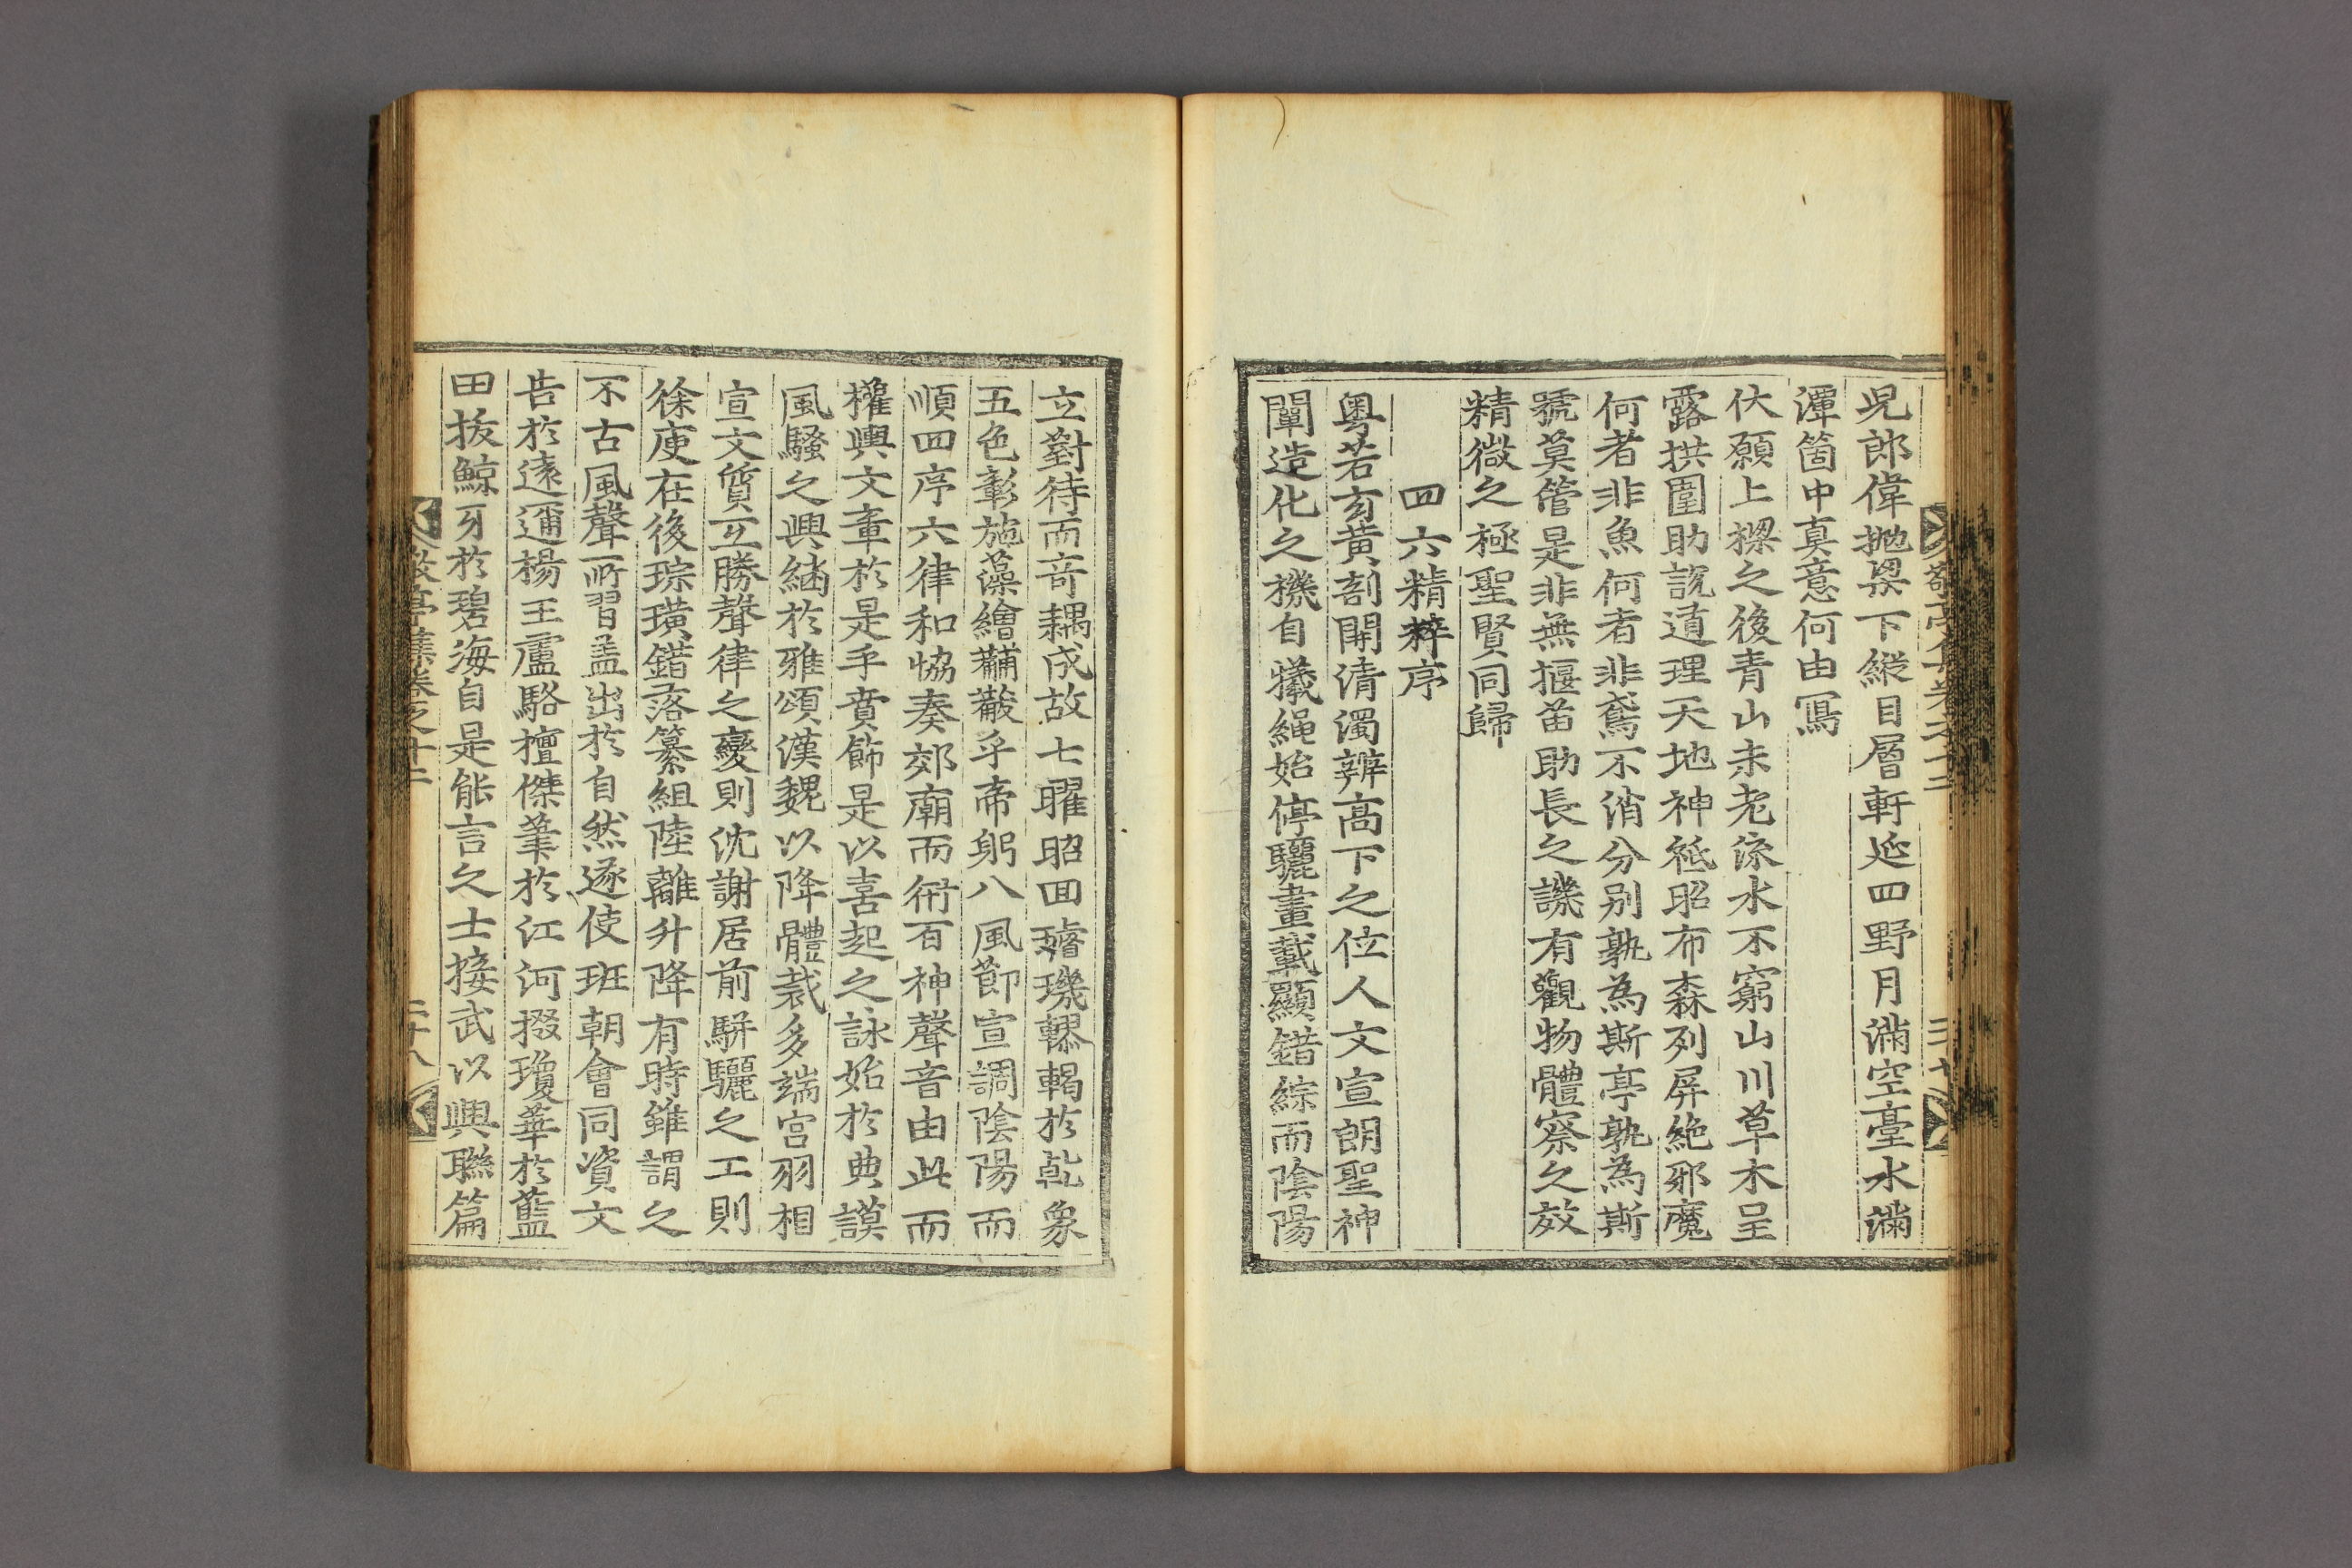 兒郎偉抛梁下縱目層軒延四野月滿空臺水滿
潭箇中真意何由寫
伏願上樑之後青山未老流水不窮山川草木呈
露拱圍助說道理天地神祗昭布森列屏絶邪魔
何者非魚何者非鳶不消分别孰為斯亭孰為斯
號莫管是非無揠苗助長之譏有觀物體察之效
精微之極聖賢同歸
四六精粹序
粤若玄黃剖開清濁辨高下之位人文宣朗聖神
闡造化之機自犧繩始停驪畫載顯錯綜而陰陽
立對待而竒耦成故七曜昭回璿璣轇轕於乾象
五色彰施藻繪黼黻乎帝躬八風節宣調陰陽而
順四序六律和恊奏郊廟而衎百神聲音由此而
權輿文章於是乎賁飾是以喜起之詠始於典謨
風騷之興緬於雅頌漢魏以降體裁多端宮羽相
宣文質互勝聲律之變則沈謝居前駢驪之工則
徐庾在後琮璜錯落纂組陸離升降有時雖謂之
不古風聲所習盖出於自然遂使班朝會同資文
告於遠邇楊王盧駱擅傑筆於江河掇瓊華於藍
田拔鯨牙於碧海自是能言之士接武以興聯篇
敬亭集卷之十二
二十八